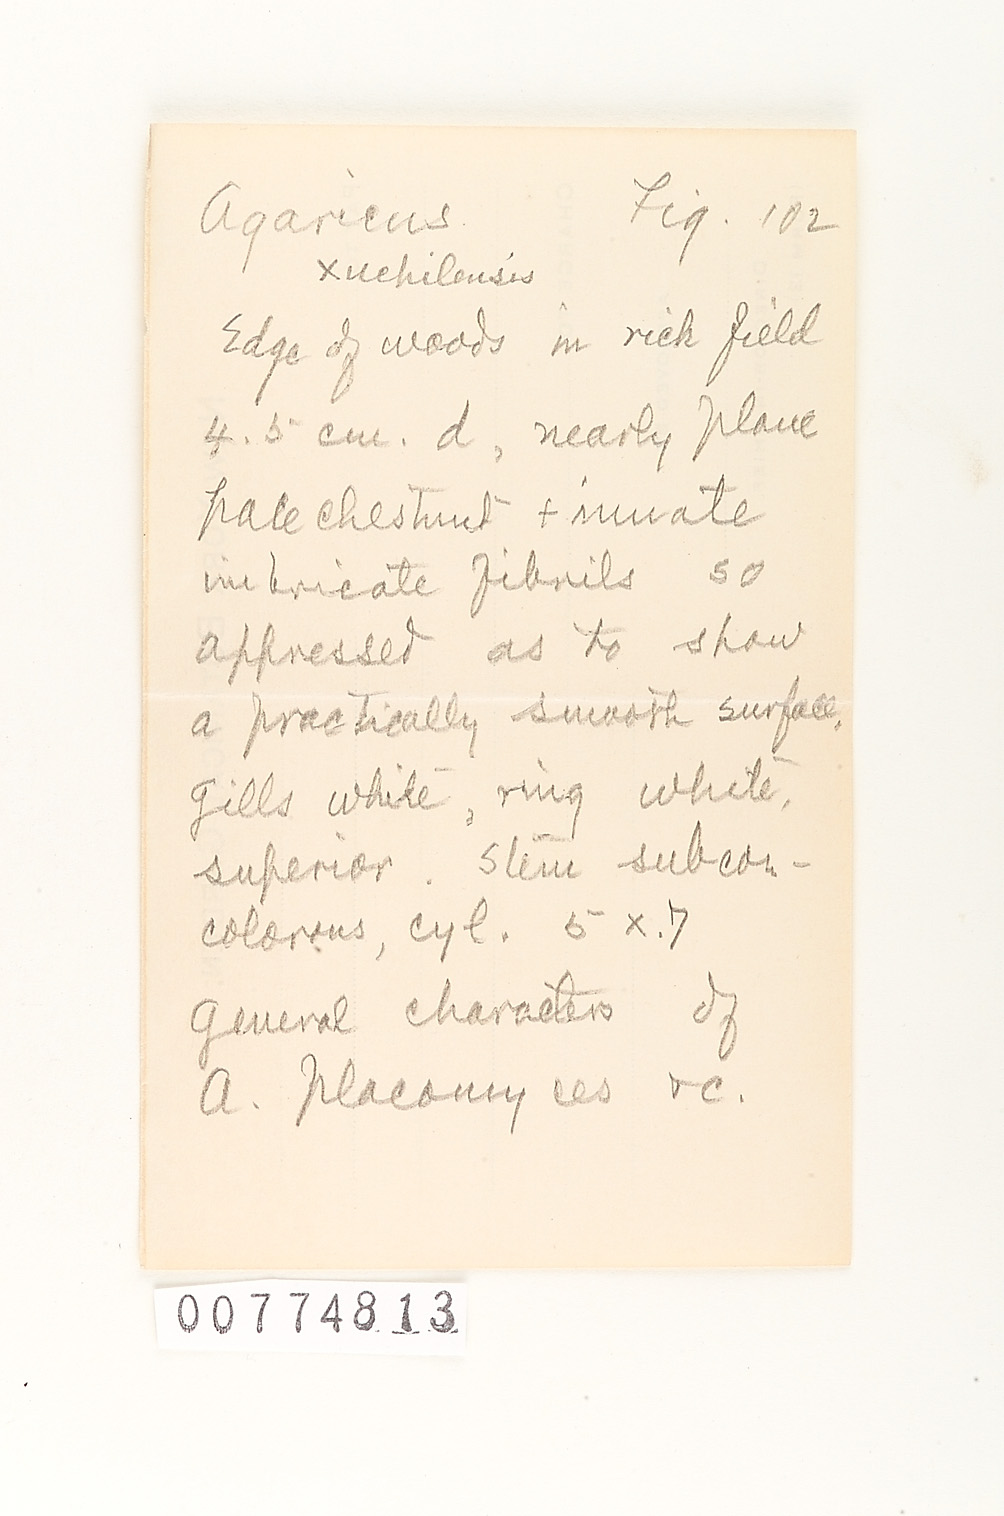 Agaricus Fig. 102
xuchilensis
Edge of woods in rich field
4.5 cm. d, nearly plane
pale chestnut + innate
imbricate fibrils so
appressed as to show
a practically smooth surface.
Gills white, ring white,
superior. Stem subcon-
colorous, cyl. 5 x .7
General characters of
A. placomyces &c.
00774813